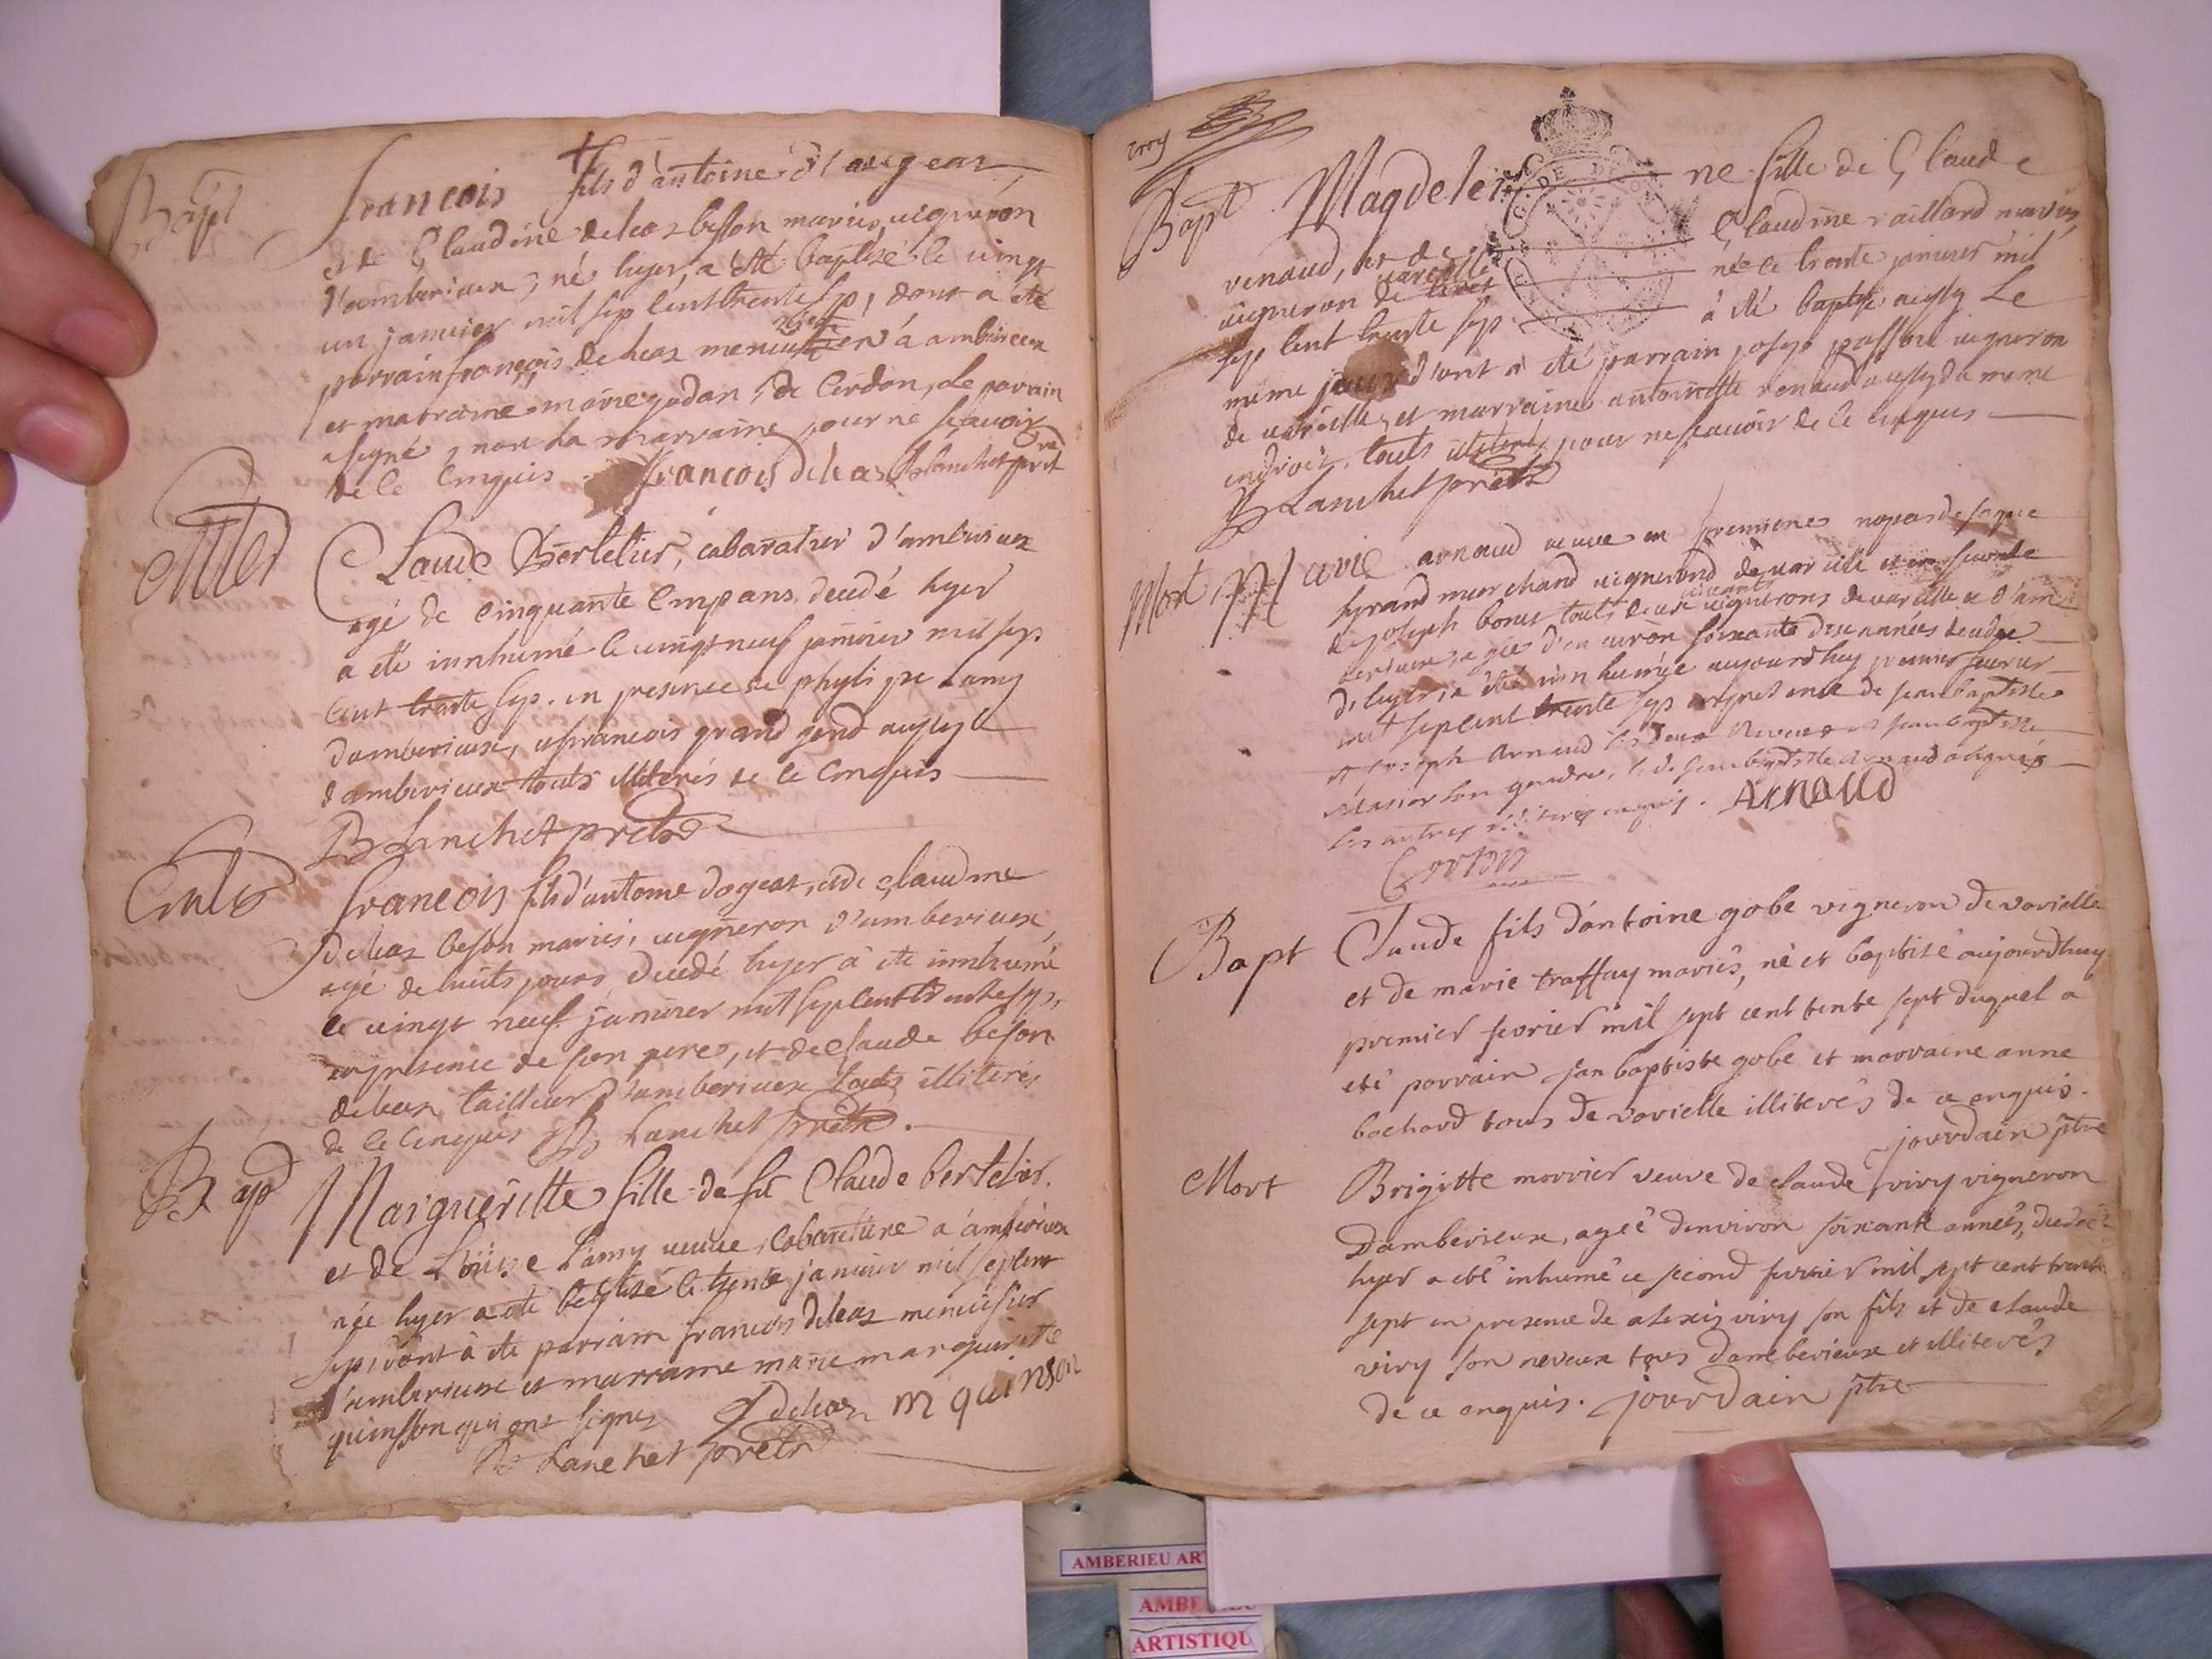 Bapt
françois fils d'antoine d'
et de Claudine deleaz besson mariés, vigneron
d'amberieux, né hyer, a été baptisé le vingt
un janvier mil sept cent trente sept, dont a été
parrain françois deleaz menuisier à amberieux
et marraine marie jodan, de Cerdon, le parrain
a signé, non la marraine, pour ne sçavoir
de ce enquis françois deleaz Blanchet prêt
Claude Bertelier, cabaratier d'amberieux
agé de cinquante cinq ans decedé hyer
a été innhumé le vingt neuf janvier mil sept
cent trente sept. en presence de philipe Lamy
damberieux, et francois grand gend aussy
d'amberieux touts illiterés de ce enquis
Blanchet prêtre
françois fils d'antoine dogeat, et de claudine
deleaz beson mariés, vigneron d'amberieux,
agé de huits jours decedé hyer à été innhumé
le vingt neuf janvier mil sept cent trente sept,
en presence de son pere, et de claude beson
deleaz tailleur d'amberieux touts illiterés
de ce enquis Blanchet prêtre.
Bap
Margueritte fille de fû Claude bertelier.
et de Loüise Lamy veuve, cabaretiere a amberieux
née hyer a été baptisé le trente janvier mil sept cent
sept dont à été parrain francois deleaz menuisier
d'amberieux et marraine marie margueritte
quinsson qui ont signes deleaz m quinson
Blanchet prêtre
Bapt Magdeleine fille de Claude
renaud, et de Claudine raillard mariés,
vigneron de vareille née le trente janvier mil
sept cent trente sept à été baptisé aussy le
meme jour dont a été parrain joseph vigneron
de vareille, et marraine antoinette renaud aussy du meme
endroit, touts illiterés, pour ne sçavoir de ce enquis
Blanchet prêtre
Mort Marie arnaud veuve en premieres nopces de
marchand vigneron de vareille et en seconde
de joseph bonet touts deux vivants vignerons de vareille et d'am
berieux, agée d'en viron soixante dix années decedée
d'hyer, a été innhumée aujourdhuy premier fevrier
mil sept cent trente sept en presence de jean baptiste
et joseph Arnaud
son gendre, jean baptiste Arnaud a signé
les autres illiteres enquis. ARNAUD
Bapt Claude fils d'antoine gobe vigneron de varielle
et de marie traffay mariés, né et baptisé aujourdhuy
premier fevrier mil sept cent tente sept duquel a
eté parrain jan baptiste gobe et marraine anne
bochard tous de varielle illiterés de ce enquis.
jourdain ptre
Mort Brigitte morrier veuve de claude viry vigneron
Damberieux, agée denviron soixante années, decedée
hyer a eté inhumé ce second fevrier mil sept cent trente
sept en presence de alexis viry son fils et de claude
viry son neveux tous damberieux et illiterés
de ce enquis. jourdain ptre
AMBERIEU AR
AMBE
ARTISTIQU